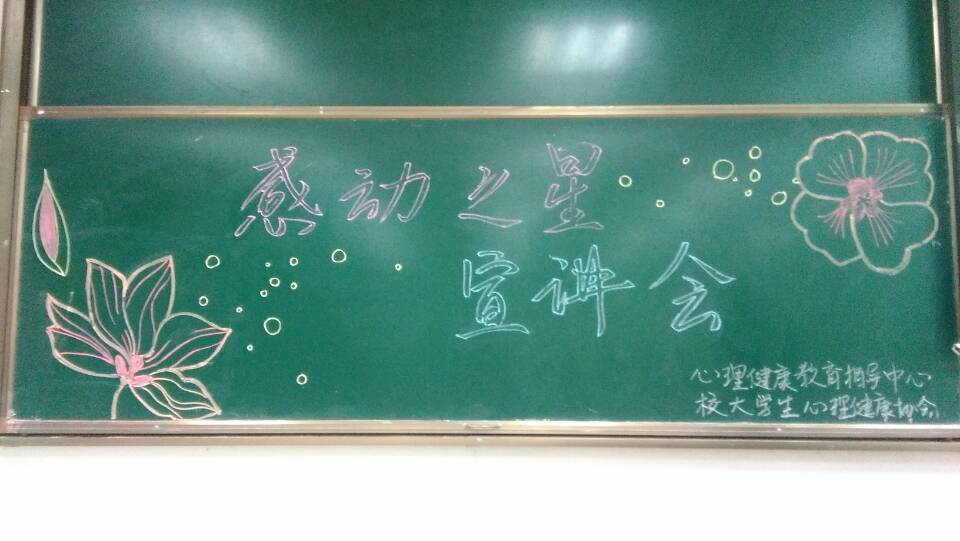 感动之星
宣讲会
心理健康教育指导中心
校大学生心理健康协会